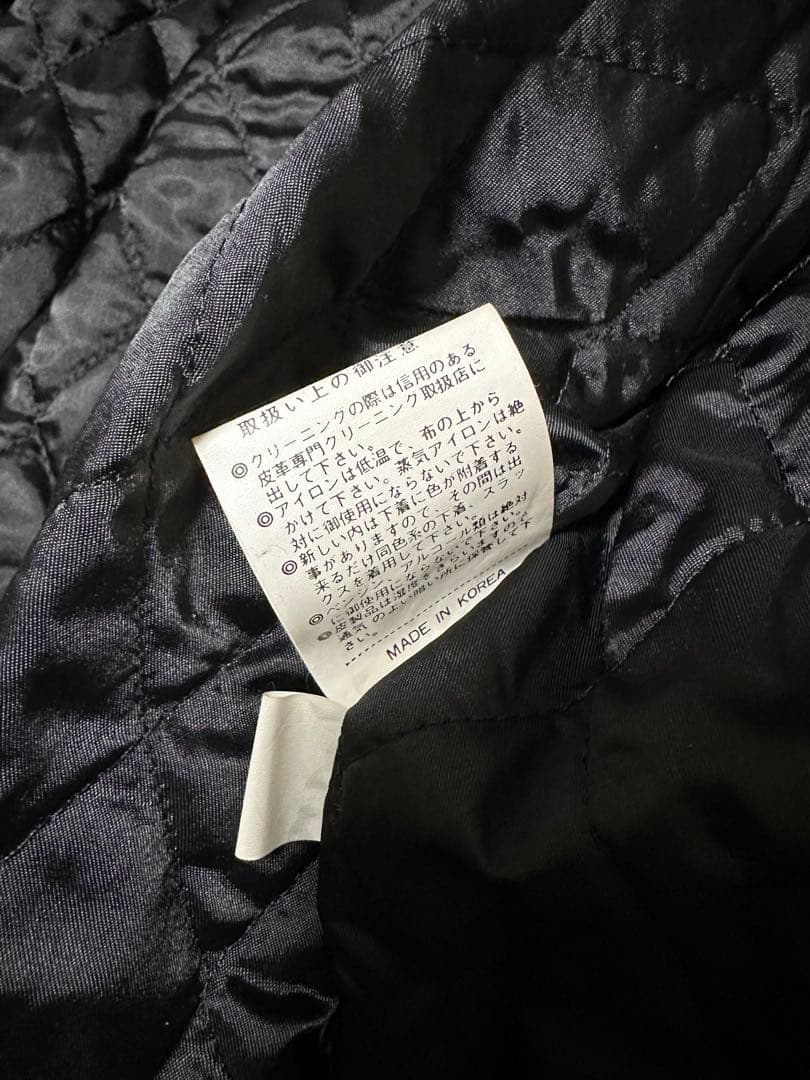 取扱い上の御注意
◎クリーニングの際は信用のある
皮革専門クリーニング取扱店に
出して下さい。
◎アイロンは低温で、布の上から
かけて下さい。蒸気アイロンは絶
対に御使用にならないで下さい。
◎新しい内は下着に色が附着する
事がありますので、その間は出
来るだけ同色系の下着、スラッ
クスを着用して下さい。
◎ベンジン、アルコール類は絶対
に御使用にならないで下さい。
◎皮製品は湿度をきらいますので
通気のよい暗い所に保管して下
さい。
MADE IN KOREA